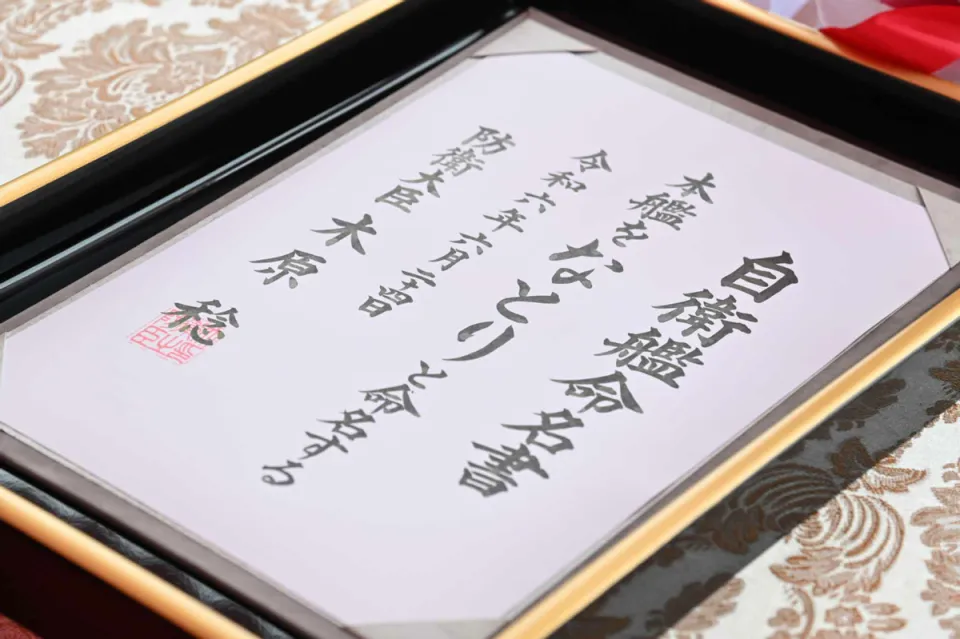 自衛艦命名書
本艦を
なとり
と命名する
令和六年六月二十四日
防衛大臣 木原 稔